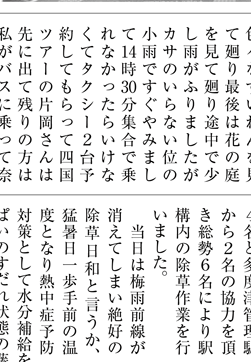 々なすいれんを見
て廻り最後は花の庭
を見て廻り途中で少
し雨がふりましたが
カサのいらない位の
小雨ですぐやみまし
て14時30分集合で乗
れなかったらいけな
くてタクシー２台予
約してもらって四国
ツアーの片岡さんは
先に出て残りの方は
私がバスに乗って奈
名と多度津管
から２名の協力を頂
き総勢６名により駅
構内の除草作業を行
いました。
当日は梅雨前線が
消えてしまい絶好の
除草日和と言うか、
猛暑日一歩手前の温
度となり熱中症予防
対策として水分補給を
ぱいのすだれ状態の